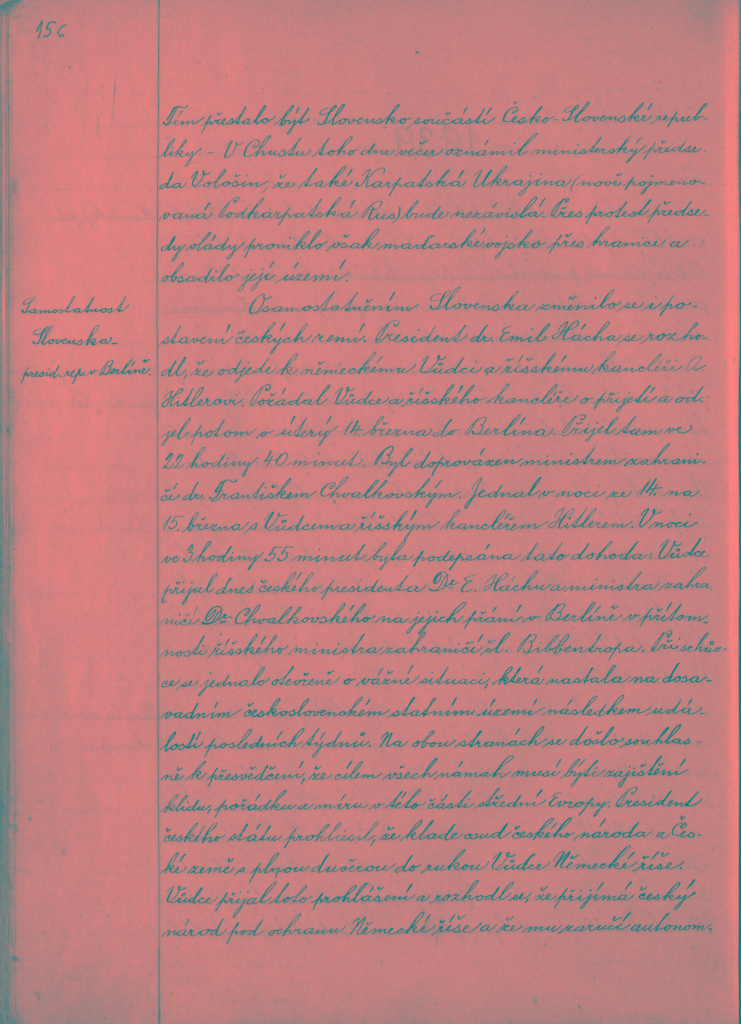 156
Tím přestalo být Slovensko součástí Česko-Slovenské repub-
liky. - V Chustu toho dne večer oznámil ministerský předse-
da Vološin, že také Karpatská Ukrajina (nově pojmeno-
vaná Podkarpatská Rus) bude nezávislá. Přes protest předse-
dy vlády proniklo však maďarské vojsko přes hranice a
obsadilo její území.
Samostatnost
Slovenska -
presid. rep. v Berlíně.
Osamostatněním Slovenska změnilo se i po-
stavení českých zemí. President dr. Emil Hácha se rozho-
dl, že odjede k německému Vůdci a říšskému kancléři A.
Hitlerovi. Požádal Vůdce a říšského kancléře o přijetí a od-
jel potom o úterý 14. března do Berlína. Přijel tam ve
22 hodiny 40 minut. Byl doprovázen ministrem zahrani-
čí dr. Františkem Chvalkovským. Jednal v noci ze 14. na
15. března s Vůdcem a říšským kancléřem Hitlerem. V noci
ve 3 hodiny 55 minut byla podepsána tato dohoda: Vůdce
přijal dnes českého presidenta Dr. E. Háchu a ministra zahra-
ničí Dr. Chvalkovského na jejich přání v Berlíně v přítom-
nosti říšského ministra zahraničí šl. Bibbentropa. Při schůz-
ce se jednalo otevřeně o vážné situaci, která nastala na dosa-
vadním československém statním území následkem udá-
lostí posledních týdnů. Na obou stranách se došlo souhlas-
ně k přesvědčení, že cílem všech námah musí býti zajištění
klidu, pořádku a míru v této části střední Evropy. President
českého státu prohlásil, že klade osud českého národa a Čes-
ké země s plnou duvěrou do rukou Vůdce Německé říše.
Vůdce přijal toto prohlášení a rozhodl se, že přijímá český
národ pod ochranu Německé říše a že mu zaručí autonom-